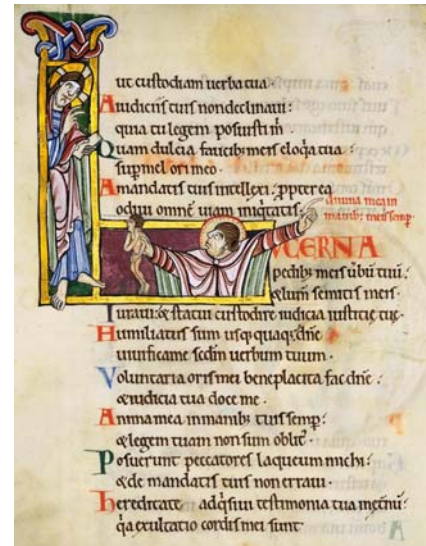 ut custodiam uerba tua·
A iudiciis tuis non declinaui:
quia tu legem posuisti m̄·
Quam dulcia faucib; meis eloq̄a tua:
sup mel ori meo·
A mandatis tuis intellexi: ꝓpterea
odiui omnē uiam iniq̇tatis·
Anima mea in
manib; meis semp·
LUCERNA
pedib; meis ūbū tuū:
& lum̄ semitis meis·
Iuraui: & statui custodire iudicia iusticię tuę·
Humiliatus sum usq; quaq; dn̄e
uiuifica me scdm̄ uerbum tuum·
Voluntaria oris mei beneplacita fac dn̄e:
& iudicia tua doce me·
Anima mea in manib; tuis semp̄:
& legem tuam non sum oblit̄·
Posuerunt peccatores laqueum michi:
& de mandatis tuis non erraui·
Hereditate adq̇siui testimonia tua in et̄nū:
q̇a exultatio cordis mei sunt·